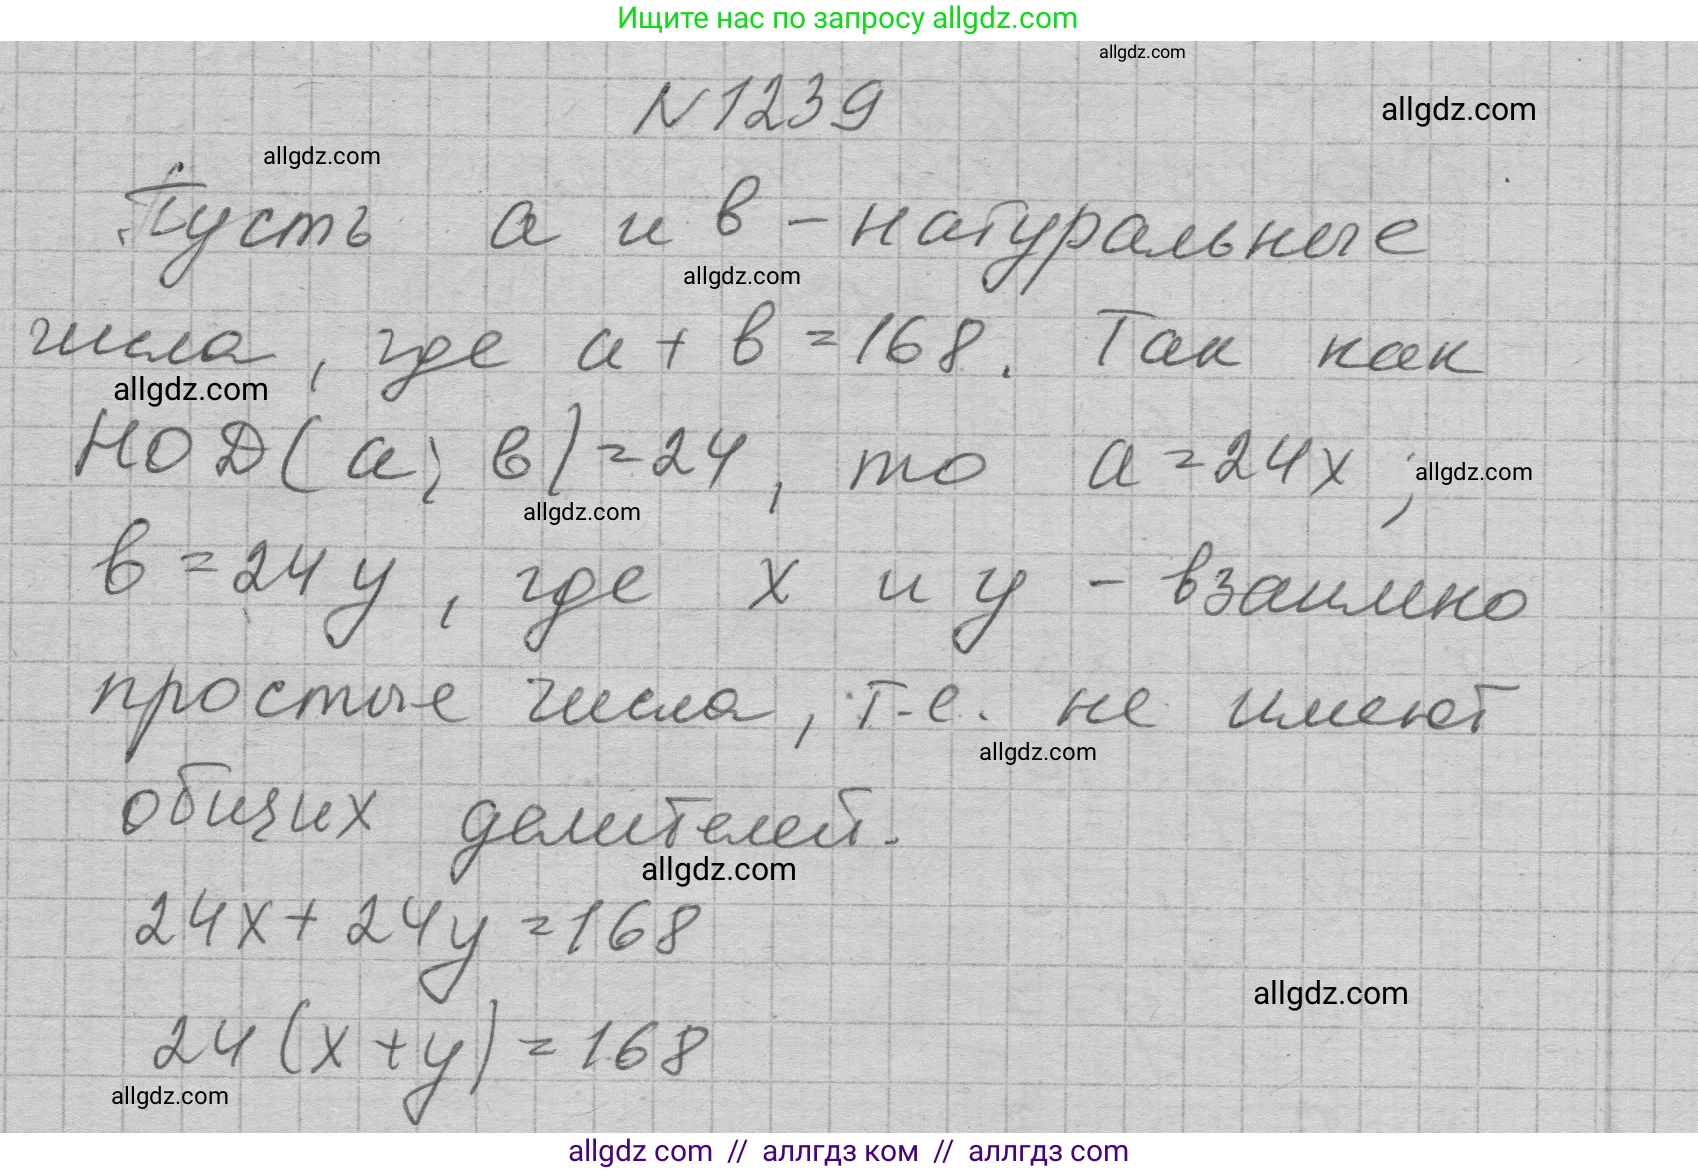 Ищите нас по запросу allgdz.com
allgdz.com
N 1239
allgdz.com
allgdz.com
Пусть a и b - натуральные
allgdz.com
числа, где a + b = 168. Так как
allgdz.com
НОД(a; b) = 24, то a = 24x;
allgdz.com
allgdz.com
b = 24y, где x и y - взаимно
простые числа, т.е. не имеют
allgdz.com
общих делителей.
allgdz.com
24x + 24y = 168
allgdz.com
24(x + y) = 168
allgdz.com
allgdz com // аллгдз ком // аллгдз com